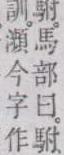 駙。馬部曰。駙
訓。瀕今字作